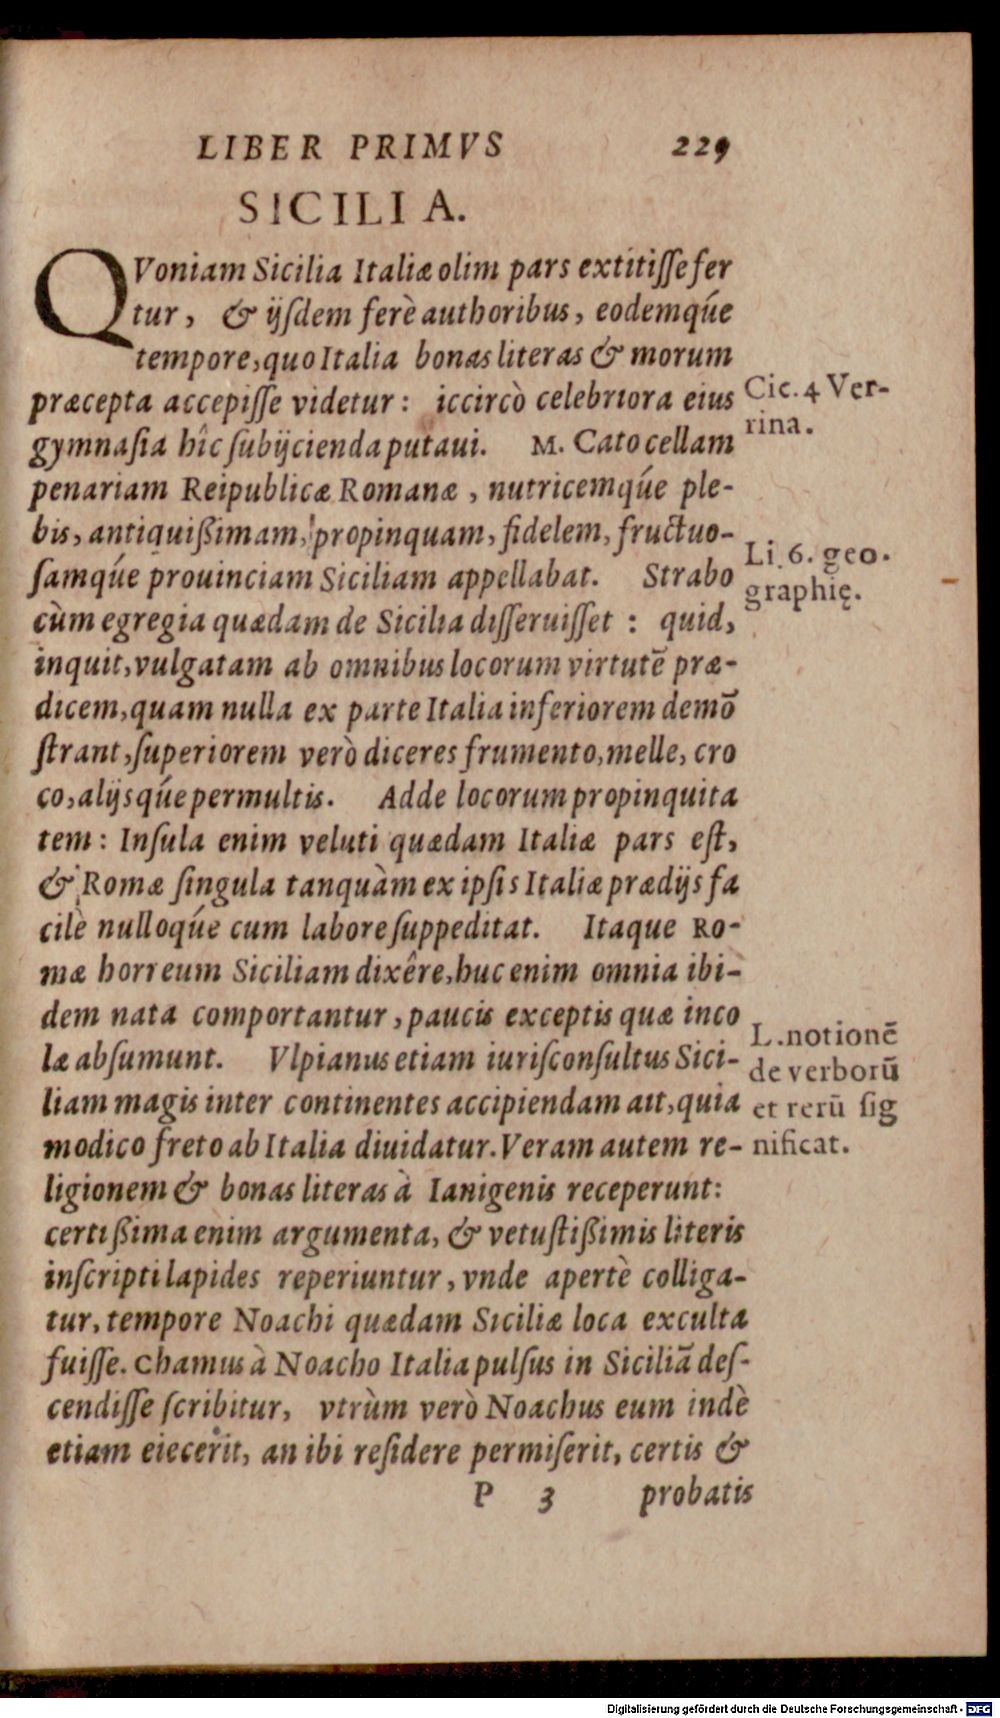 LIBER PRIMVS 229
SICILIA.
QVoniam Sicilia Italiæ olim pars extitisse fer
tur, & ijsdem ferè authoribus, eodemq́ue
tempore, quo Italia bonas literas & morum
præcepta accepisse videtur: iccircò celebriora eius
gymnasia hîc subijcienda putaui. M. Cato cellam
penariam Reipublicæ Romanæ, nutricemq́ue ple-
bis, antiquißimam, propinquam, fidelem, fructuo-
samq́ue prouinciam Siciliam appellabat. Strabo
cùm egregia quædam de Sicilia disseruisset: quid,
inquit, vulgatam ab omnibus locorum virtutē præ-
dicem, quam nulla ex parte Italia inferiorem demō
strant, superiorem verò diceres frumento, melle, cro
co, alijsq́ue permultis. Adde locorum propinquita
tem: Insula enim veluti quædam Italiæ pars est,
& Romæ singula tanquàm ex ipsis Italiæ prædijs fa
cilè nulloq́ue cum labore suppeditat. Itaque Ro-
mæ horreum Siciliam dixêre, huc enim omnia ibi-
dem nata comportantur, paucis exceptis quæ inco
læ absumunt. Vlpianus etiam iurisconsultus Sici-
liam magis inter continentes accipiendam ait, quia
modico freto ab Italia diuidatur. Veram autem re-
ligionem & bonas literas à Ianigenis receperunt:
certißima enim argumenta, & vetustißimis literis
inscripti lapides reperiuntur, vnde apertè colliga-
tur, tempore Noachi quædam Siciliæ loca exculta
fuisse. Chamus à Noacho Italia pulsus in Siciliā des-
cendisse scribitur, vtrùm verò Noachus eum indè
etiam eiecerit, an ibi residere permiserit, certis &
P 3 probatis
Cic. 4 Ver-
rina.
Li. 6. geo.
graphię.
L. notionē
de verborū
et rerū sig
nificat.
Digitalisierung gefördert durch die Deutsche Forschungsgemeinschaft - DFG